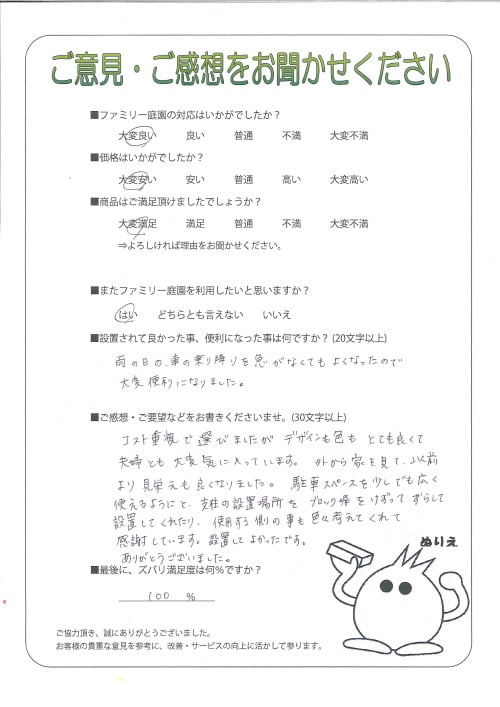 ご意見・ご感想をお聞かせください
■ファミリー庭園の対応はいかがでしたか？
大変良い 良い 普通 不満 大変不満
■価格はいかがでしたか？
大変安い 安い 普通 高い 大変高い
■商品はご満足頂けましたでしょうか？
大変満足 満足 普通 不満 大変不満
⇒よろしければ理由をお聞かせください。
■またファミリー庭園を利用したいと思いますか？
はい どちらとも言えない いいえ
■設置されて良かった事、便利になった事は何ですか？(20文字以上)
雨の日の、車の乗り降りを急がなくてもよくなったので
大変便利になりました。
■ご感想・ご要望などをお書きくださいませ。(30文字以上)
コスト重視で選びましたが デザインも色も とても良くて
夫婦とも 大変気に入っています。 外から家を見て、以前
より 見栄えも良くなりました。 駐車スペースを少しでも広く
使えるようにと、支柱の設置場所を ブロック塀をけずって ずらして
設置してくれたり、使用する側の事も色々考えてくれて
感謝しています。設置して よかったです。
ありがとうございました。
■最後に、ズバリ満足度は何％ですか？
100 ％
ぬりえ
ご協力頂き、誠にありがとうございました。
お客様の貴重な意見を参考に、改善・サービスの向上に活かして参ります。